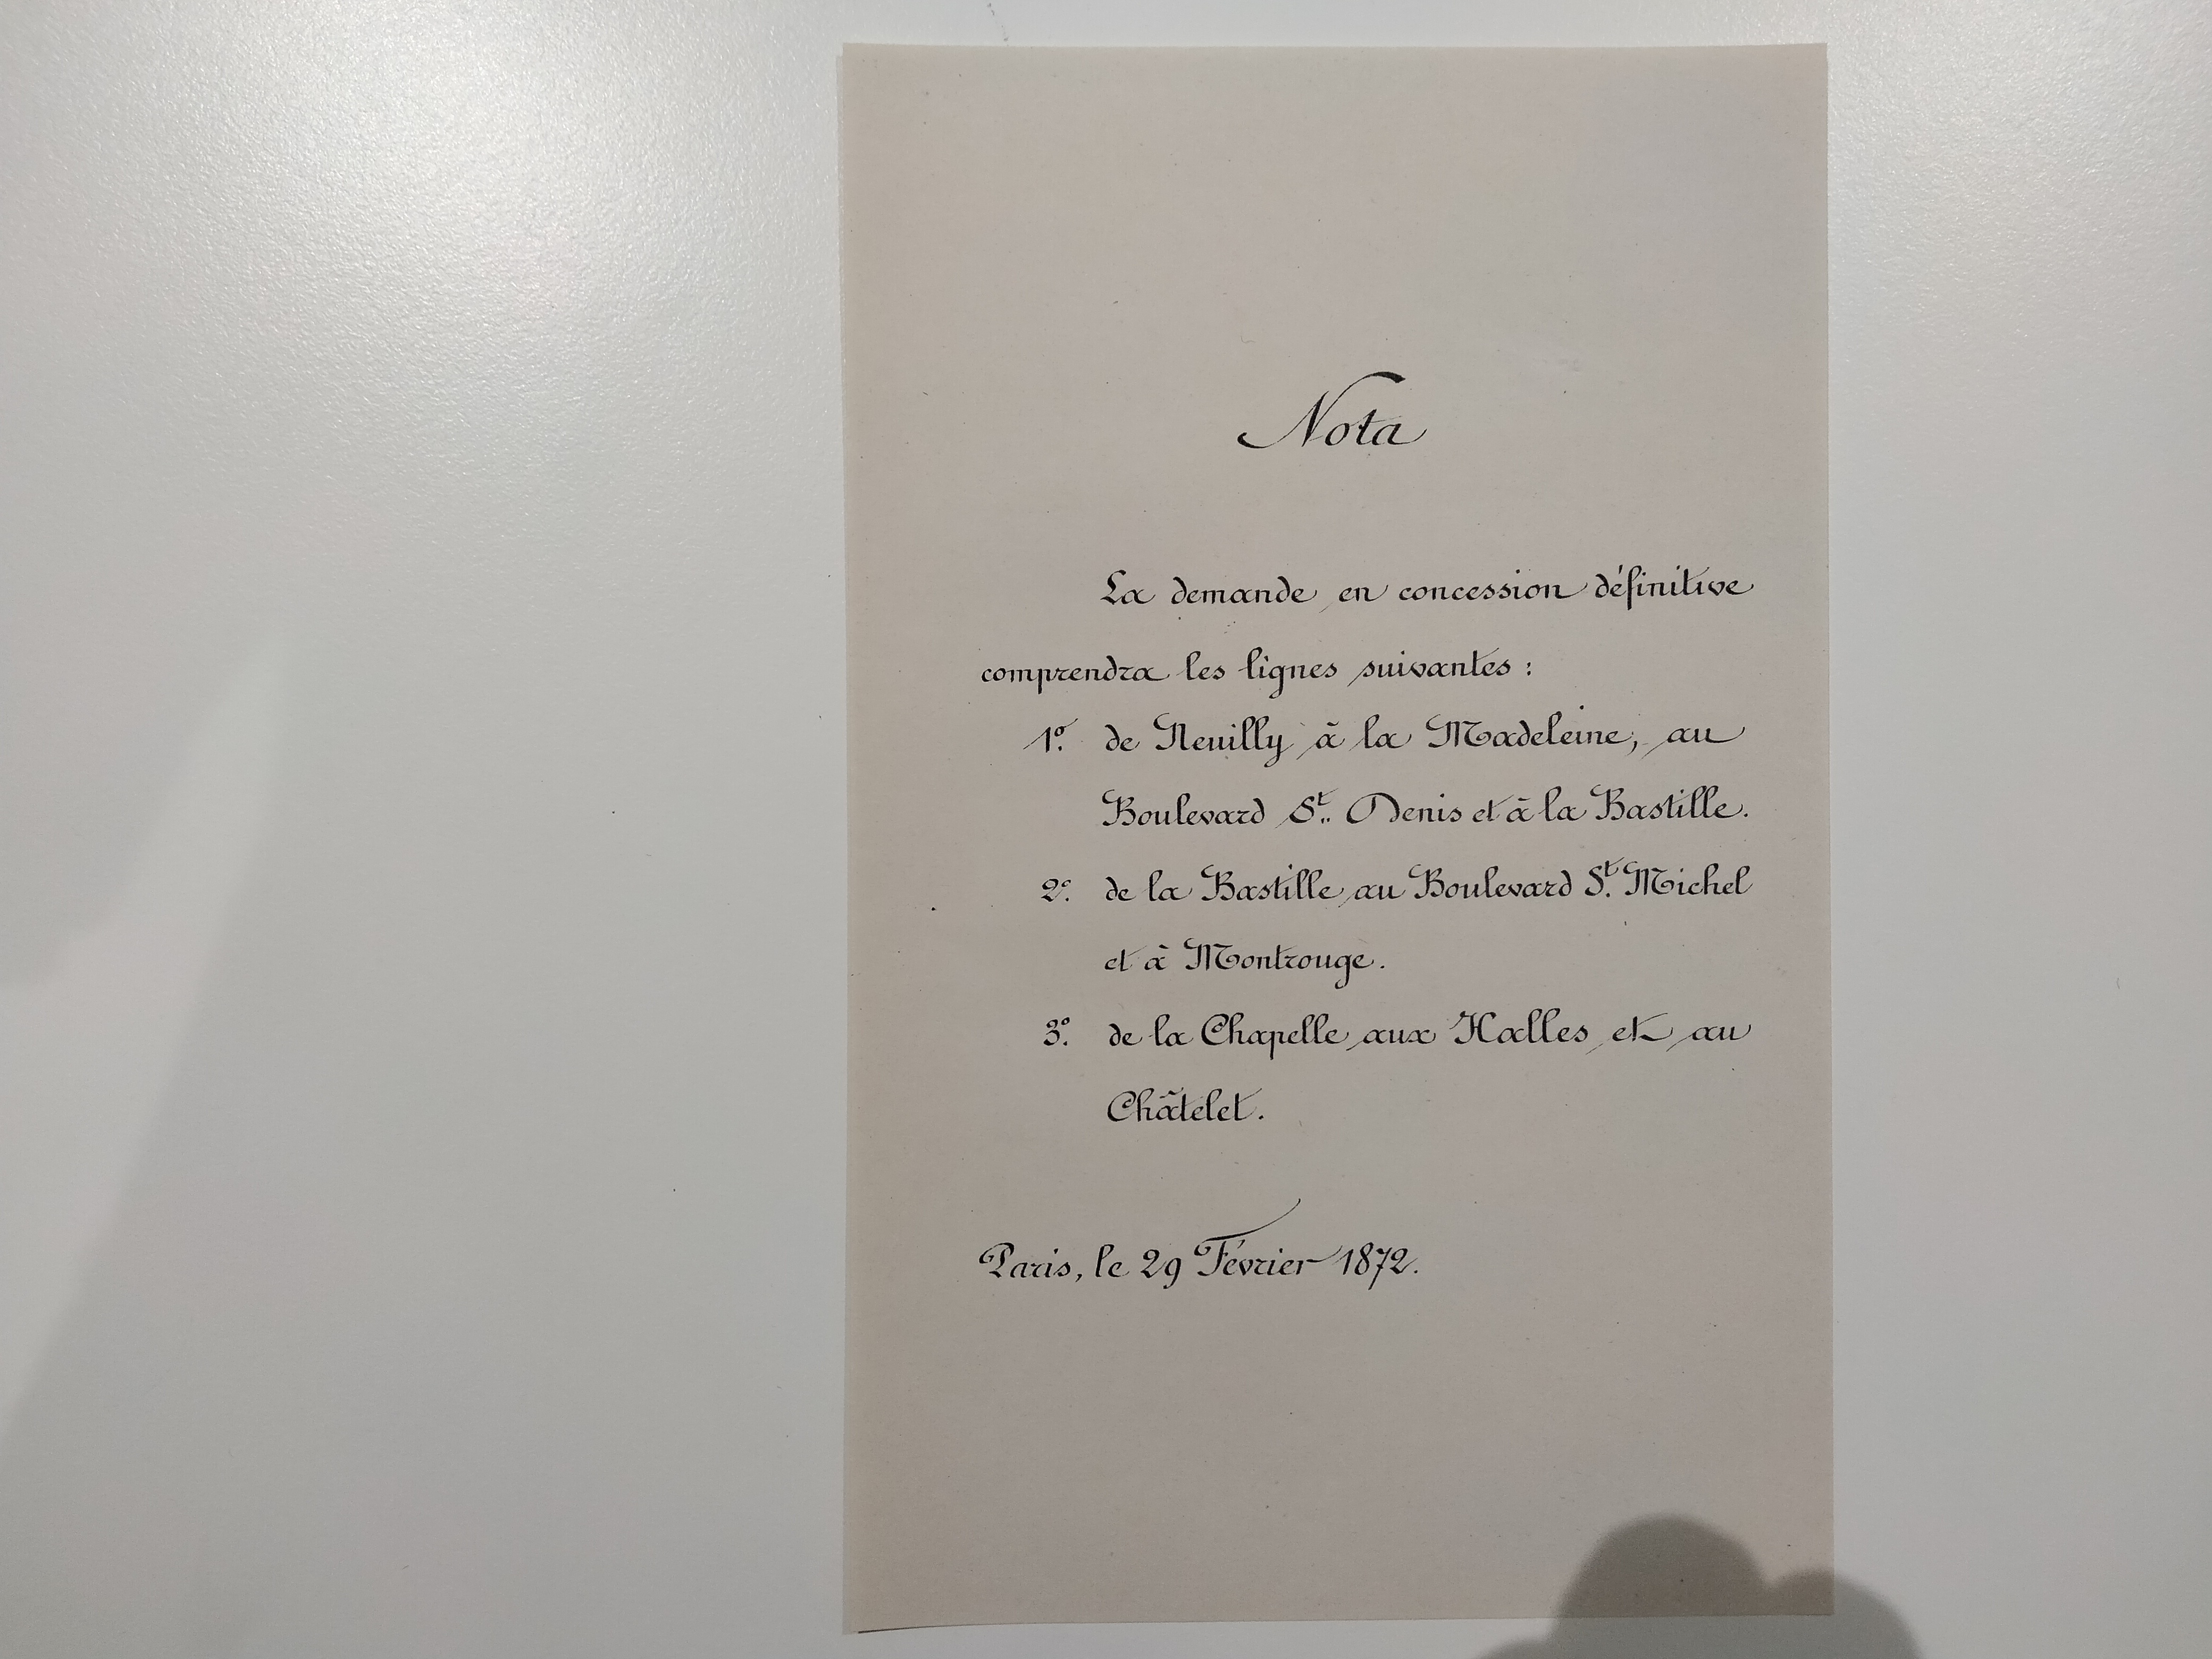 Nota
La demande en concession définitive
comprendra les lignes suivantes :
1º. de Neuilly à la Madeleine, au
Boulevard St. Denis et à la Bastille.
2º. de la Bastille au Boulevard St. Michel
et à Montrouge.
3º. de la Chapelle aux Halles et au
Châtelet.
Paris, le 29 Février 1872.